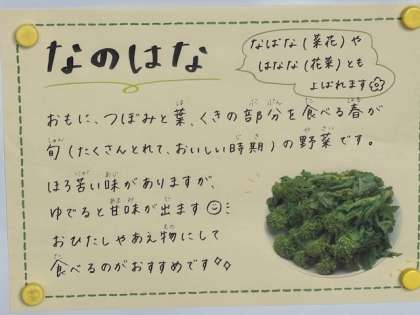 なのはな
なばな(菜花)や
はなな(花菜)とも
よばれます
おもに、つぼみと葉、くきの部分を食べる春が
旬(たくさんとれて、おいしい時期)の野菜です。
ほろ苦い味がありますが、
ゆでると甘味が出ます
おひたしやあえ物にして
食べるのがおすすめです